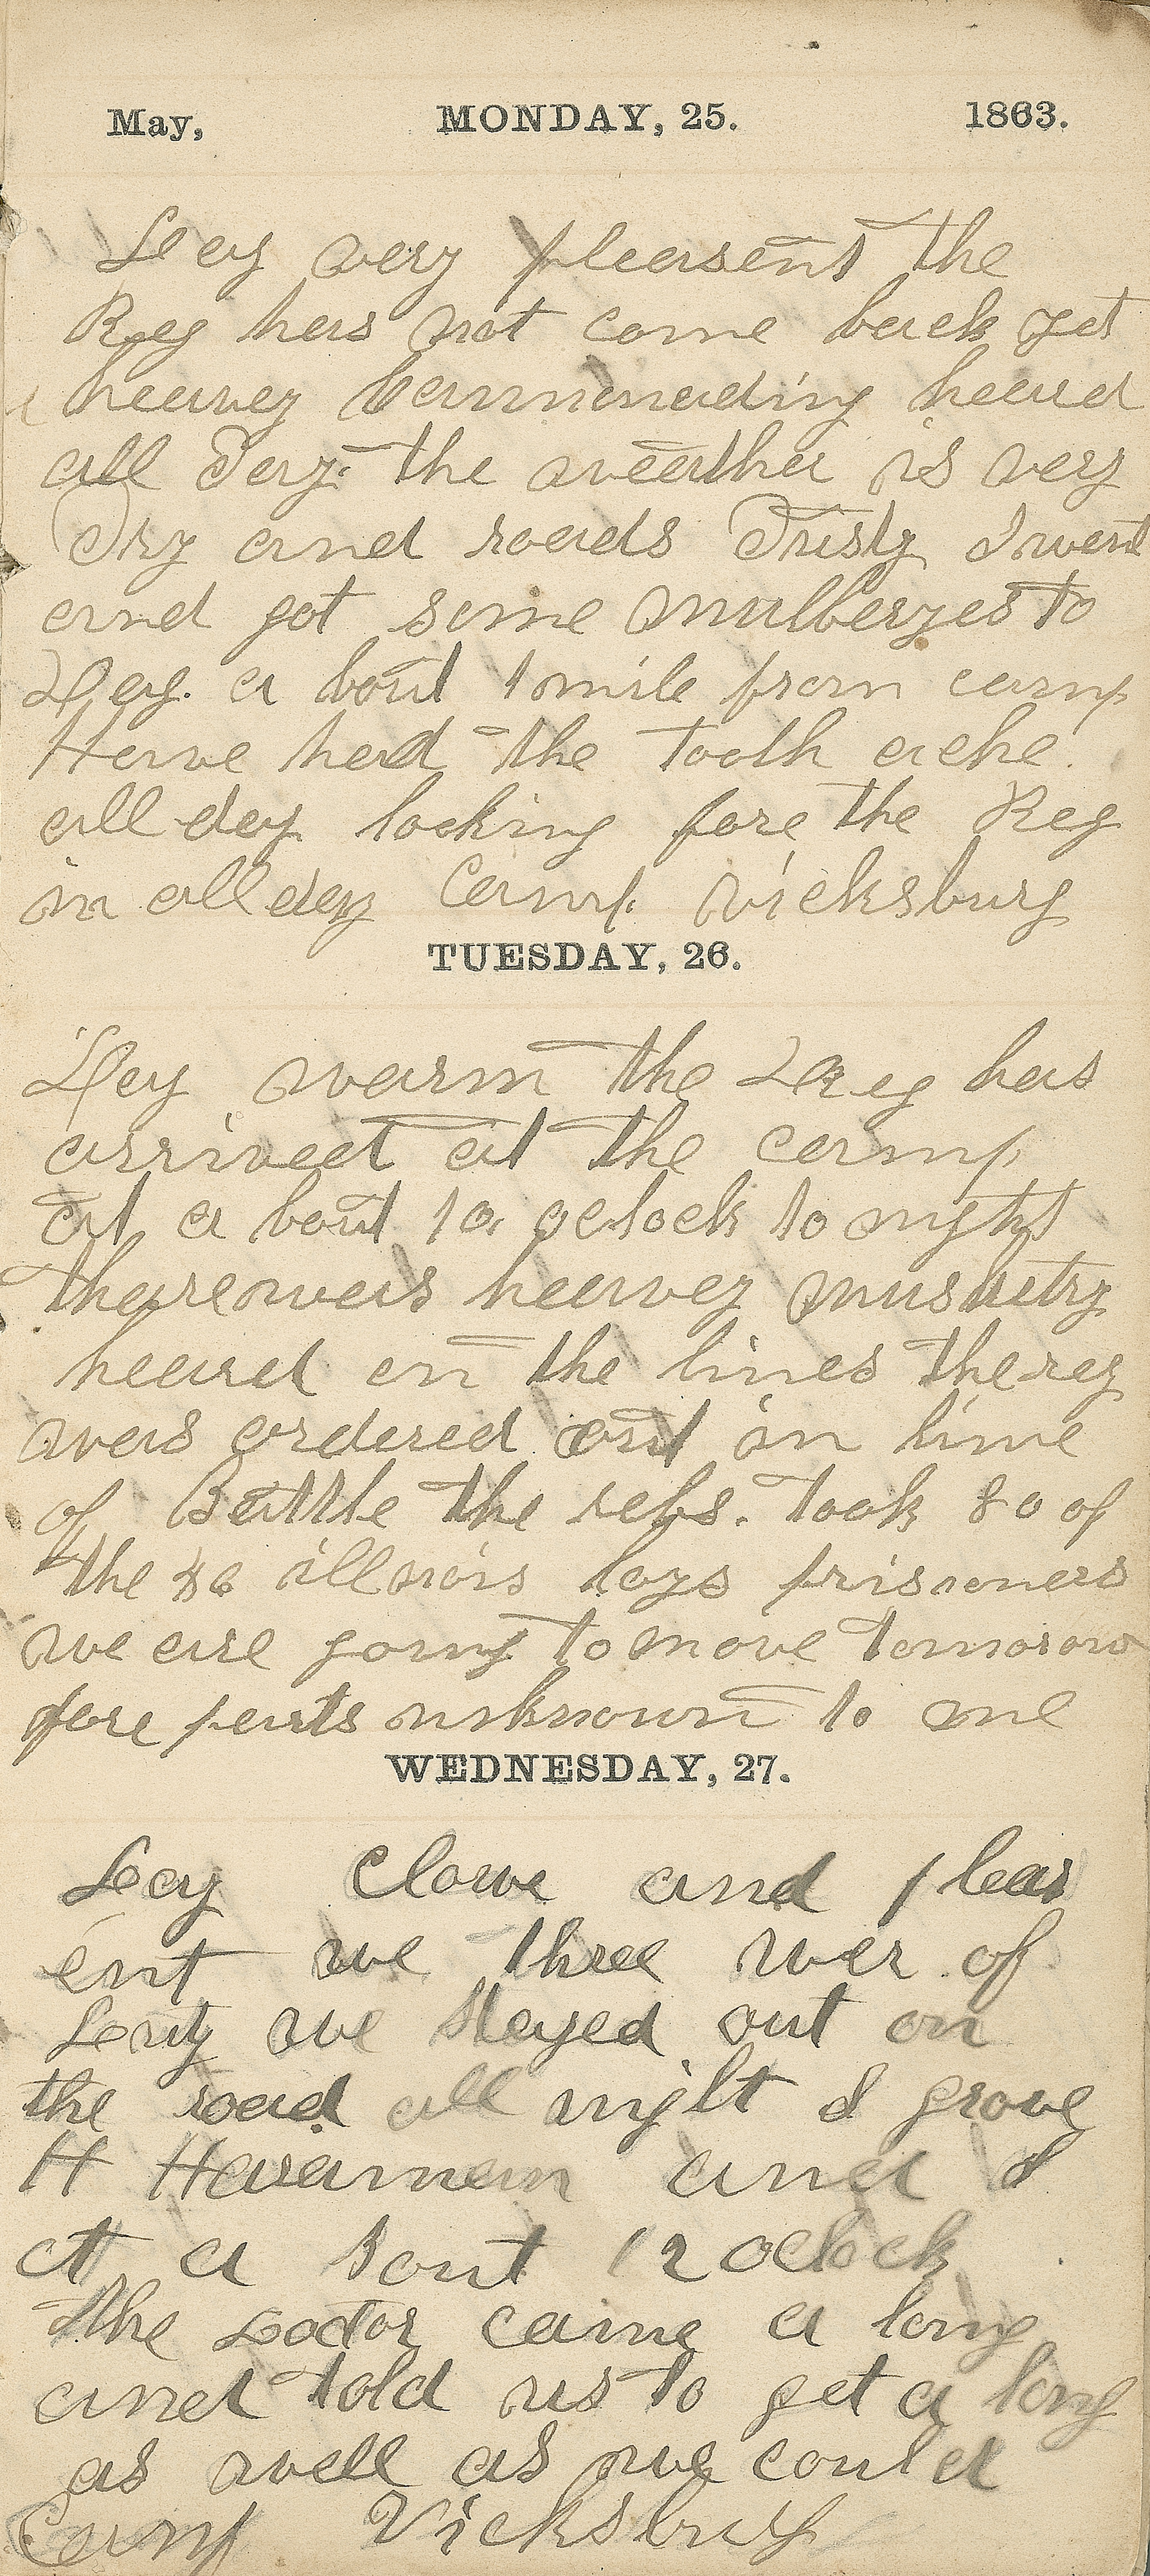 May, MONDAY, 25. 1863.
Day very pleasent the
Reg has not come back yet
heavey bammonading heard
all Day. the weather is very
Dry and roads Dusty I went
and got some mulberyes to
Day. a bout 1 mile from camp
Have had the tooth ache.
all day looking fore the Reg
in all day Camp. vicksburg
TUESDAY, 26.
Day warm the Reg has
arriveed at the camp
at a bout 10, oclock to night
thare was heavey musketry
heard on the lines the reg
was ordered out in line
of Battle the rebs. took 80 of
the 46 illinois boys prisoners
we are going to move tomorow
fore parts unknown to me
WEDNESDAY, 27.
Day Clowe and pleas
ent we three wer of
Duty we stayed out on
the road all night I grove
H Haraman and I
at a bout 12 oclock
the Doctor came a long
and told us to get a long
as well as we could
Camp Vicksburg